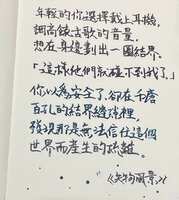 年輕的你選擇戴上耳機,
調高後古歌的音量,
想在身邊劃出一圈結界。
「這樣他們就碰不到我了。」
你以為安全了,卻在千瘡
百孔的結界縫隙裡,
發現那是無法信任這個
世界而產生的疏離。
《失物風景》